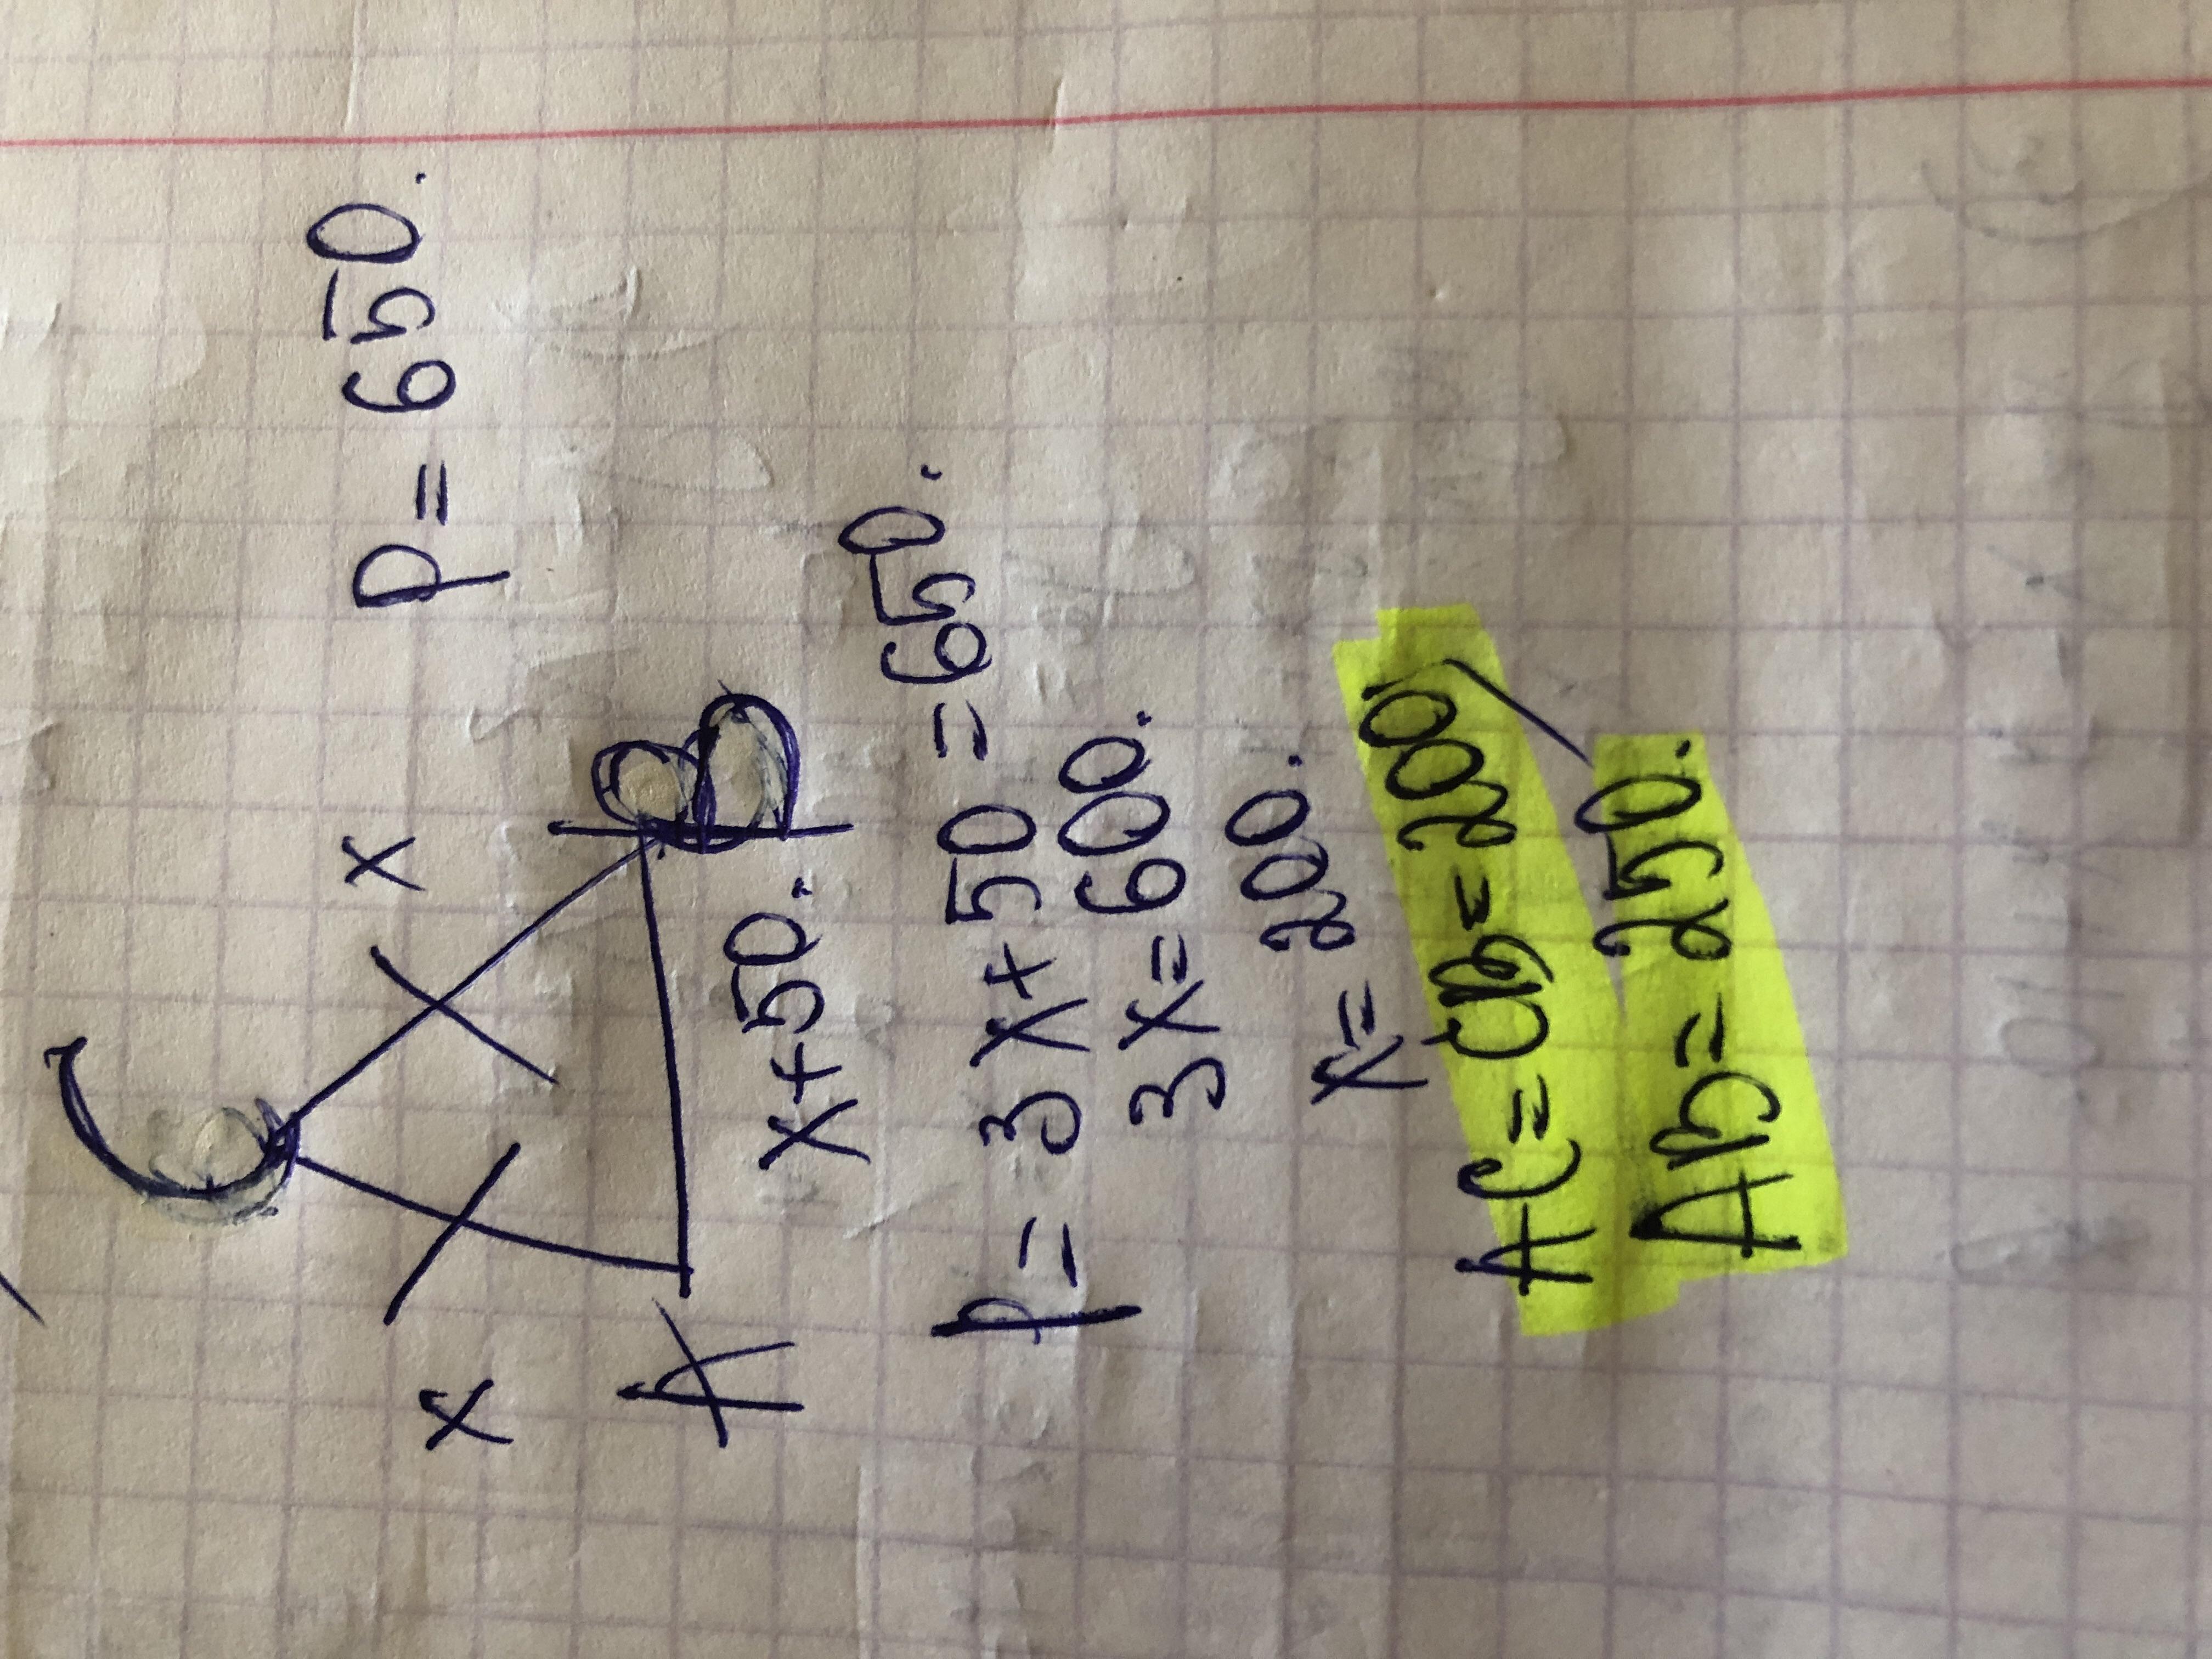 P = 650.
C
x x
A B
x+50.
P = 3x+50 = 650.
3x = 600.
x = 200.
AC = CB = 200,
AB = 250.